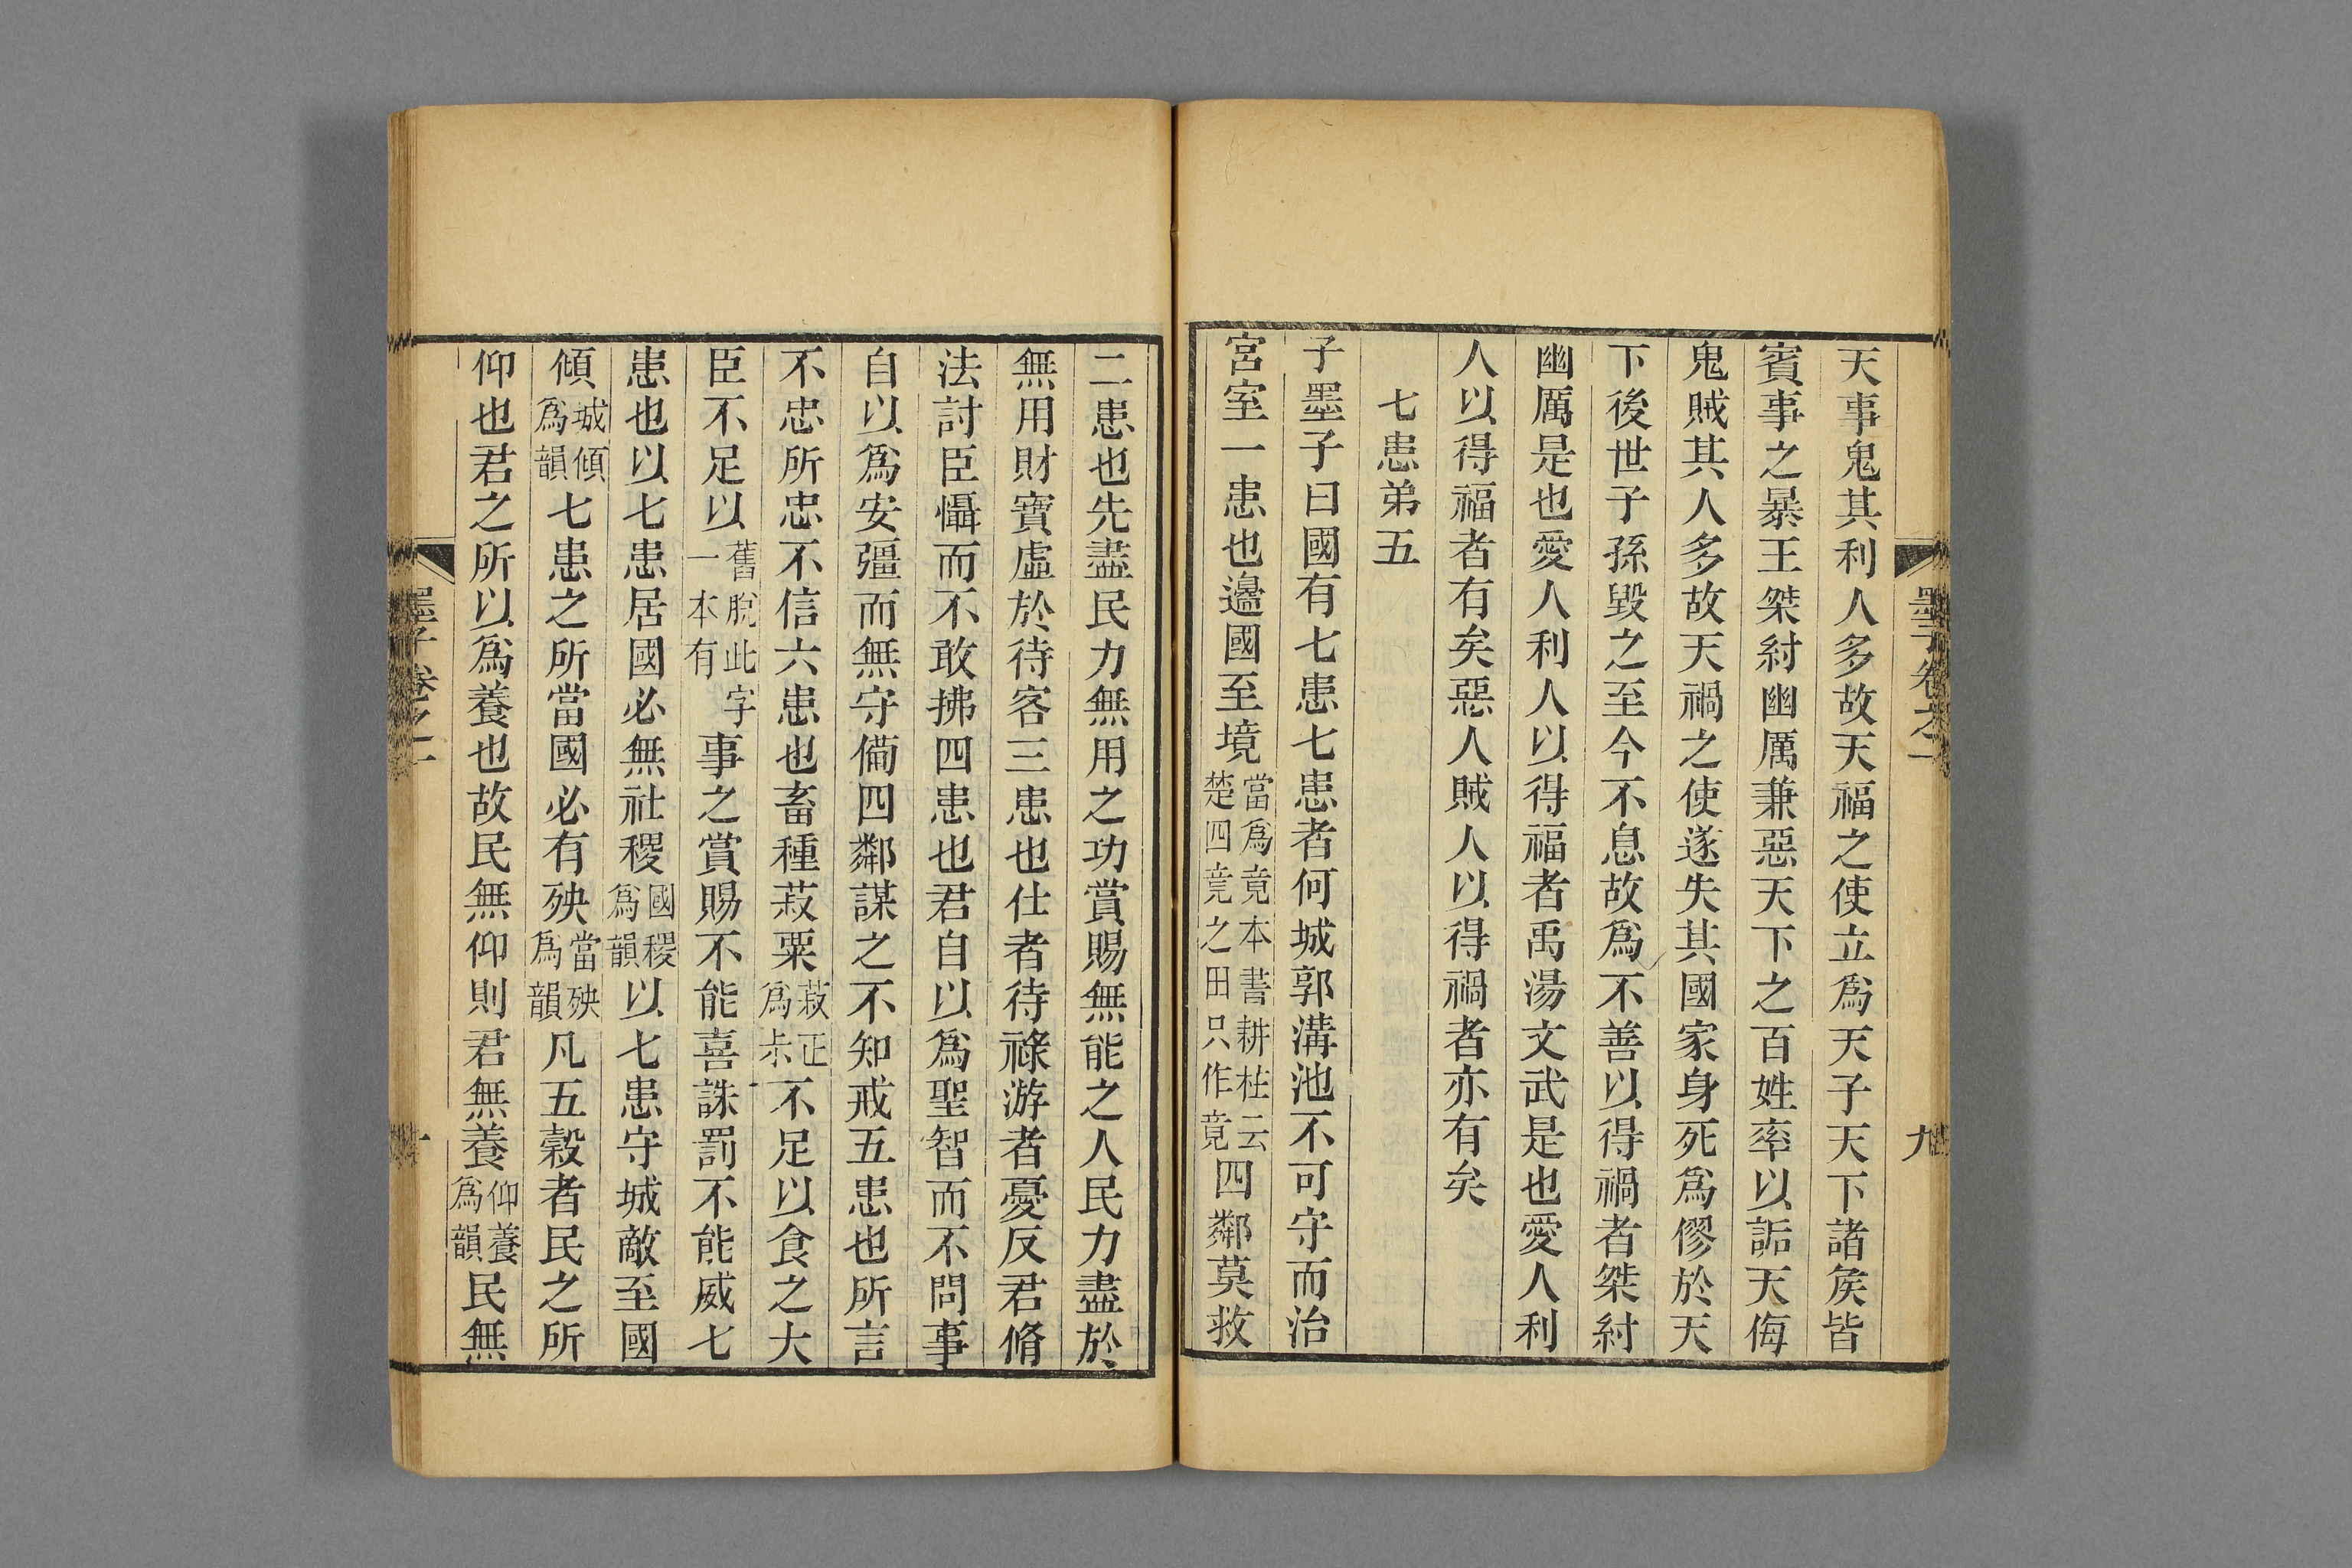 墨子卷之一
九
天事鬼其利人多故天福之使立爲天子天下諸矦皆
賓事之暴王桀紂幽厲兼惡天下之百姓率以詬天侮
鬼賊其人多故天禍之使遂失其國家身死爲僇於天
下後世子孫毀之至今不息故爲不善以得禍者桀紂
幽厲是也愛人利人以得福者禹湯文武是也愛人利
人以得福者有矣惡人賊人以得禍者亦有矣
七患弟五
子墨子曰國有七患七患者何城郭溝池不可守而治
宮室一患也邊國至境當爲竟本書耕柱云楚四竟之田只作竟四鄰莫救
二患也先盡民力無用之功賞賜無能之人民力盡於
無用財寶虛於待客三患也仕者待祿游者憂反君脩
法討臣懾而不敢拂四患也君自以爲聖智而不問事
自以爲安彊而無守備四鄰謀之不知戒五患也所言
不忠所忠不信六患也畜種菽粟菽正爲尗不足以食之大
臣不足以舊脫此字一本有事之賞賜不能喜誅罰不能威七
患也以七患居國必無社稷國稷爲韻以七患守城敵至國
傾城傾爲韻七患之所當國必有殃當殃爲韻凡五穀者民之所
仰也君之所以爲養也故民無仰則君無養仰養爲韻民無
墨子卷之一
十